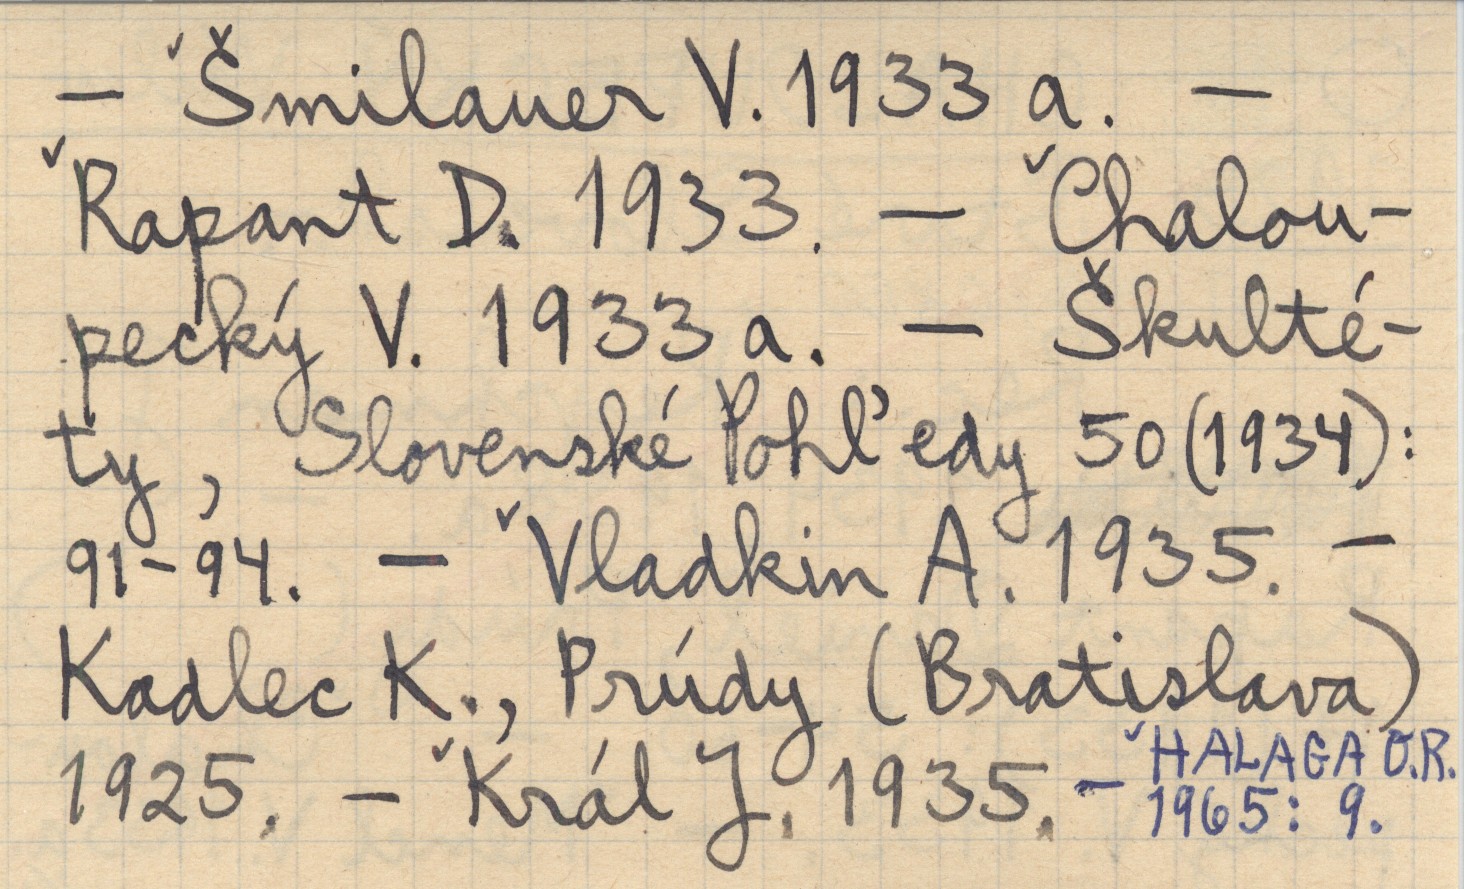 – ˇŠmilauer V. 1933 a. –
ˇRapant D. 1933. – ˇChalou-
pecký V. 1933 a. – Škulté-
ty, Slovenské Pohľedy 50 (1934):
91-94. – ˇVladkin A. 1935. –
Kadlec K., Prúdy (Bratislava)
1925. – ˇKrál J. 1935. – ˇHALAGA O.R.
1965: 9.